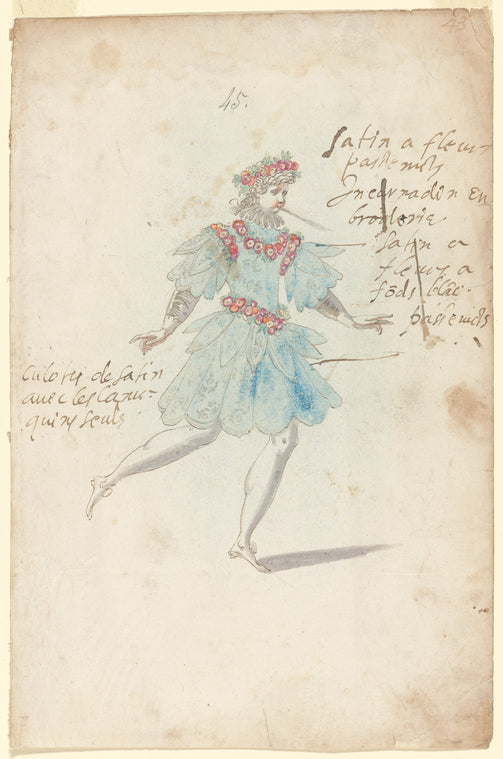 43
45.
Satin a fleurs
passemēts
Incarnadin En
broderie
Satin a
fleurs a
fōds blāc
passemēts
Culotes de satin
avec les
seuls